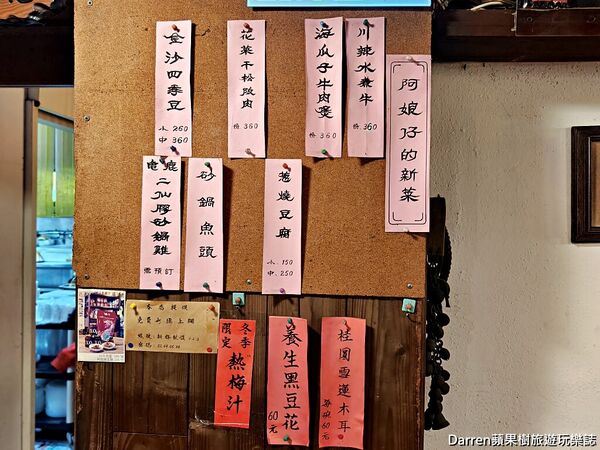 阿娘仔的新菜
川辣水煮牛
格 360
海瓜子牛肉煲
格 360
花菜干松阪肉
格 360
金沙四季豆
小 260
中 360
蔥燒豆腐
小.150
中.250
砂鍋魚頭
龜鹿二仙膠砂鍋雞
需預訂
本店提供
免費無線上網
冬季限定
熱梅汁
養生黑豆花
60元
桂圓雪蓮木耳
60元
Darren蘋果樹旅遊玩樂誌